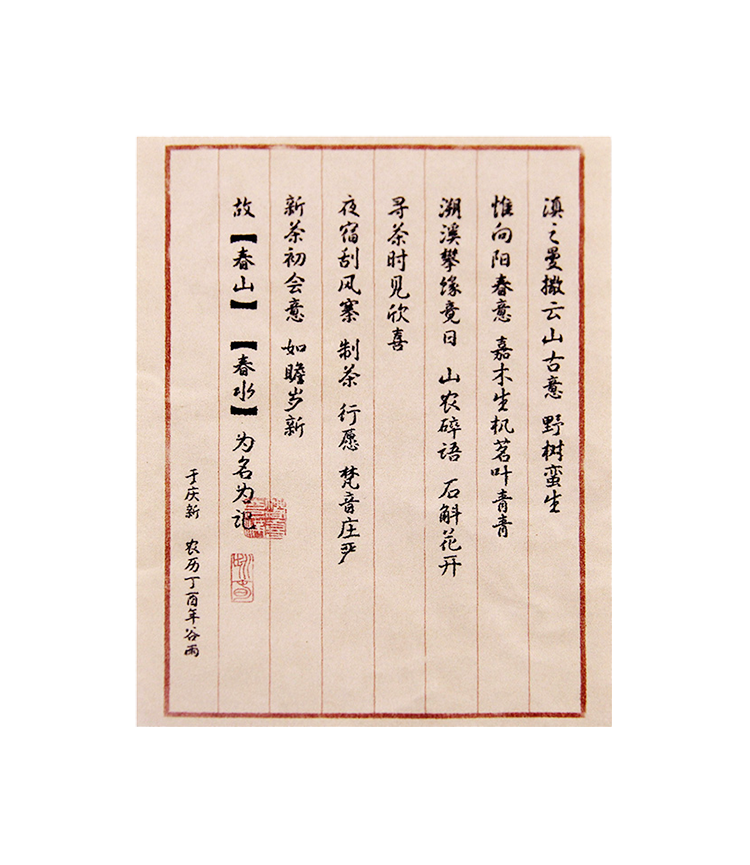 滇之曼撒云山古意 野树蛮生
惟向阳春意 嘉木生机茗叶青青
溯溪攀缘竟日 山农碎语 石斛花开
寻茶时见欣喜
夜宿刮风寨 制茶 行愿 梵音庄严
新茶初会意 如瞻岁新
故【春山】【春水】为名为记
于庆新 农历丁酉年谷雨